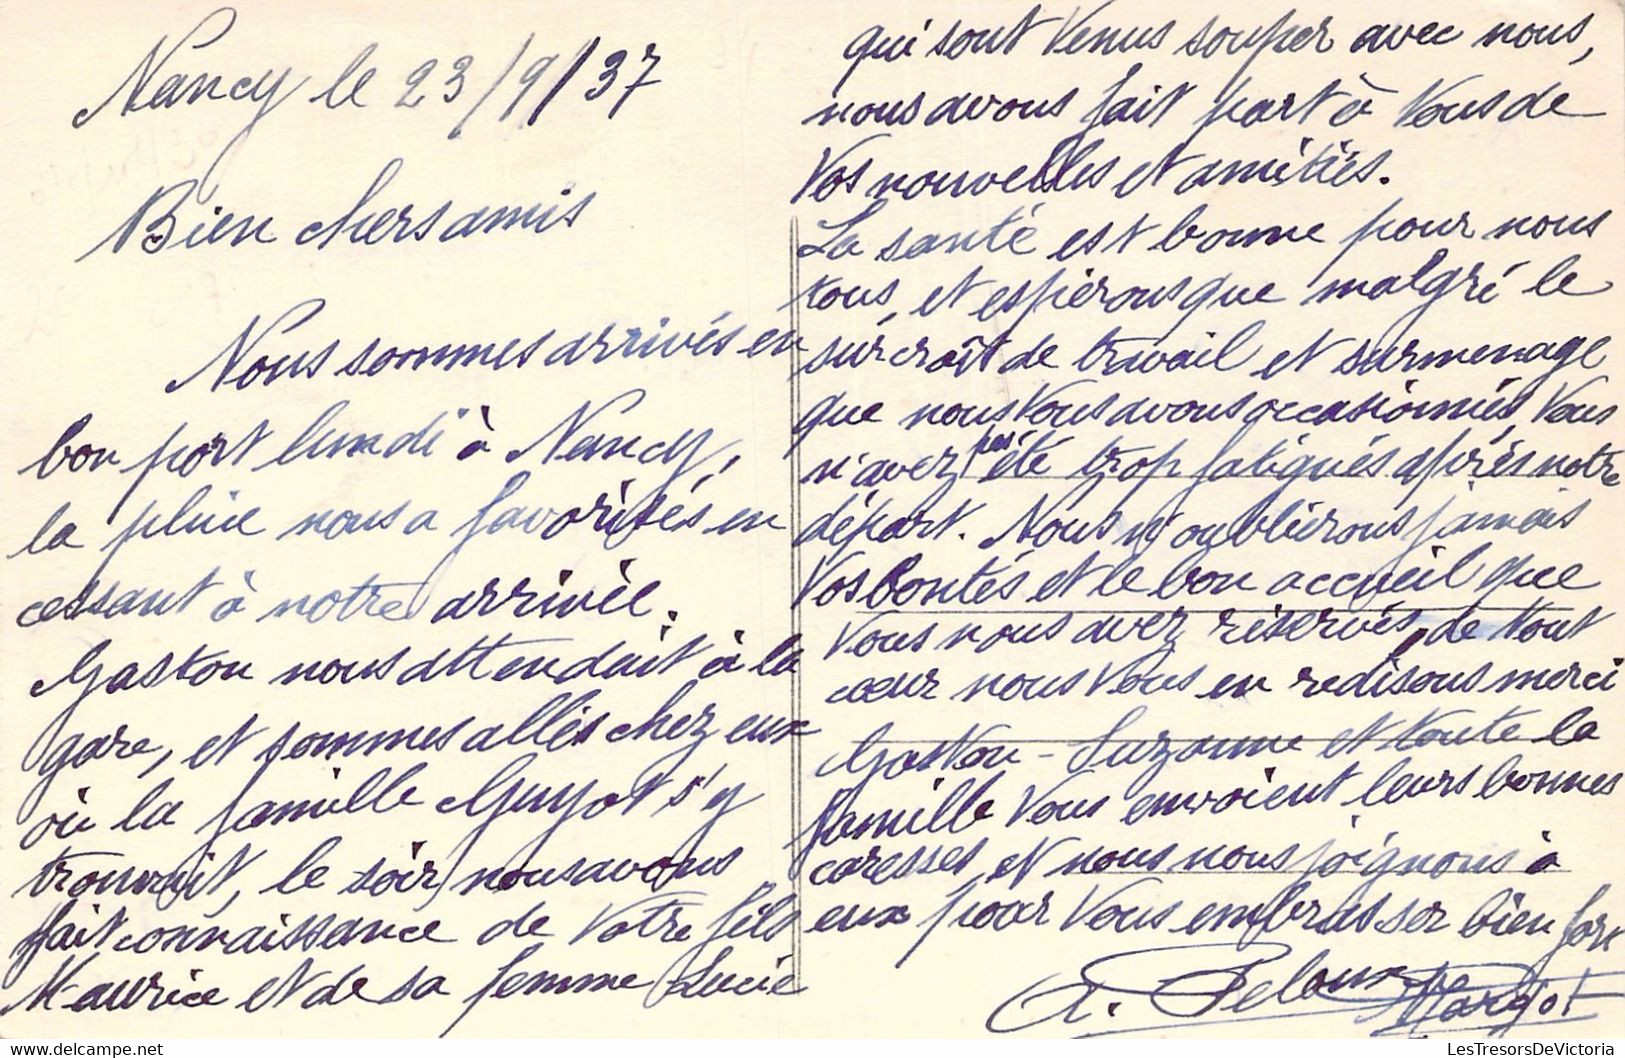 Nancy le 23/9/37
Bien chers amis
Nous sommes arrivés en
bon port lundi à Nancy,
la pluie nous a favorisés en
cessant à notre arrivée.
Gaston nous attendait à la
gare, et sommes allés chez eux
où la famille Guyot s'y
trouvait, le soir, nous avons
fait connaissance de Votre fils
Maurice et de sa femme Lucie
qui sont Venus souper avec nous,
nous avons fait part à Vous de
Vos nouvelles et amitiés.
La santé est bonne pour nous
tous, et espérons que malgré le
surcroît de travail et surmenage
que nous Vous avons occasionnés, Vous
n'avez pas été trop fatigués après notre
départ. Nous n'oublierons jamais
Vos bontés et le bon accueil que
Vous nous avez réservés, de tout
cœur nous Vous en redisons merci
Gaston - Suzanne et toute la
famille Vous envoient leurs bonnes
caresses, et nous nous joignons à
eux pour Vous embrasser bien fort
Margot
LesTresorsDeVictoria